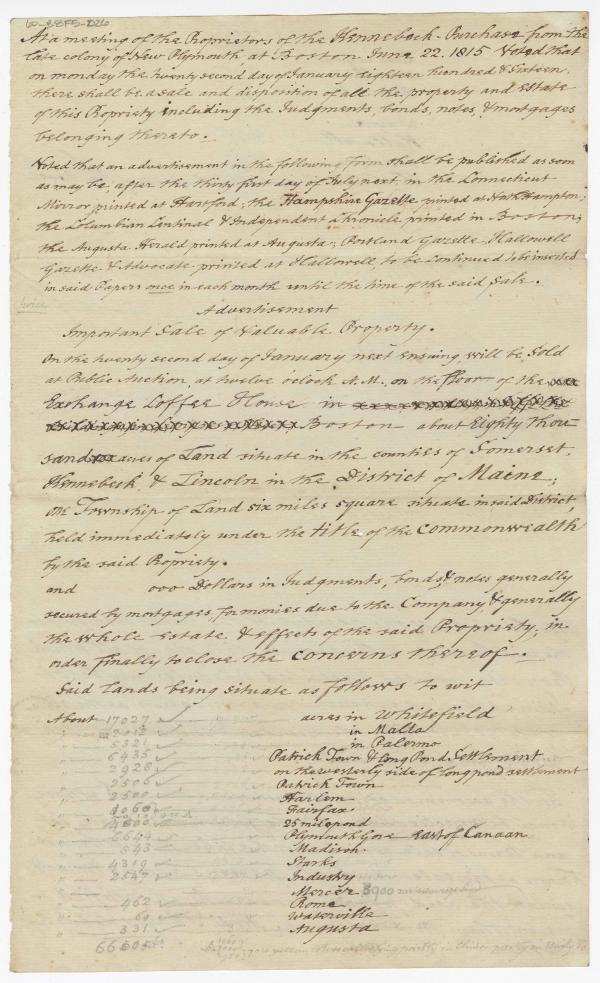 60-88F5-1026
At a meeting of the Proprietors of the Kennebeck-Purchase from the
late colony of New Plymouth at Boston June 22. 1815 Voted that
on monday the twenty second day of January eighteen hundred & Sixteen,
there shall be a sale and disposition of all the property and Estate
of this Propriety including the Judgments, bonds, notes, & mortgages
belonging thereto.
Voted that an advertisement in the following form shall be published as soon
as may be, after the thirty first day of July next, in the Connecticut
Mirror printed at Hartford; the Hampshire Gazette printed at North Hampton;
the Columbian Centinal & Independent Chronicle, printed in Boston;
the Augusta Herald printed at Augusta; Portland Gazette, Hallowell
Gazette & Advocate printed at Hallowell, to be continued & be inserted
in said Papers once in each month until the time of the said Sale.
twice
Advertisement
Important Sale of Valuable Property.
On the twenty second day of January next ensuing, will be, Sold
at Public Auction, at twelve oclock A.M., on the floor of the
Exchange Coffee House in
Boston about Eighty thou
sand acres of Land situate in the counties of Somerset,
Kennebeck & Lincoln in the District of Maine;
one Township of Land six miles square situate in said District,
held immediately under the title of the Commonwealth
by the said Propriety.
and 000 Dollars in Judgments, bonds, & notes generally
secured by mortgages, for monies due to the Company & generally
the whole estate & effects of the said Propriety, in
order finally to close the concerns thereof.
Said lands being situate as follows to wit
About 17027 acres in Whitefield
2012 in Malta
5321 in Palermo
6435 Patrick Town & Long Pond Settlement
2928 on the westerly side of long pond settlement
2506 Patrick Town
2500 Harlem
1060 Fairfax
4600 25 mile pond
6644 Plymouth Gore East of Canaan
543 Madison.
4319 Starks
2547 Industry
Mercer 3900
462 Rome
60 Waterville
331 Augusta
66505